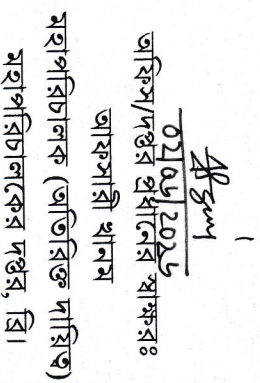 02/04/2024
অফিস/দপ্তর প্রধানের স্বাক্ষরঃ
আফসারী খানম
মহাপরিচালক (অতিরিক্ত দায়িত্ব)
মহাপরিচালকের দপ্তর, বি।